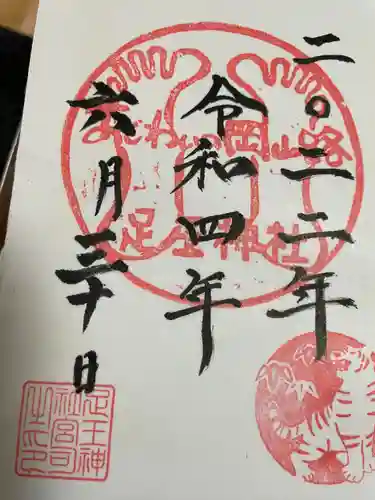 二〇二二年
令和四年
六月三十日
あじわいの岡山路
足王神社
足王神
社宮司
之印